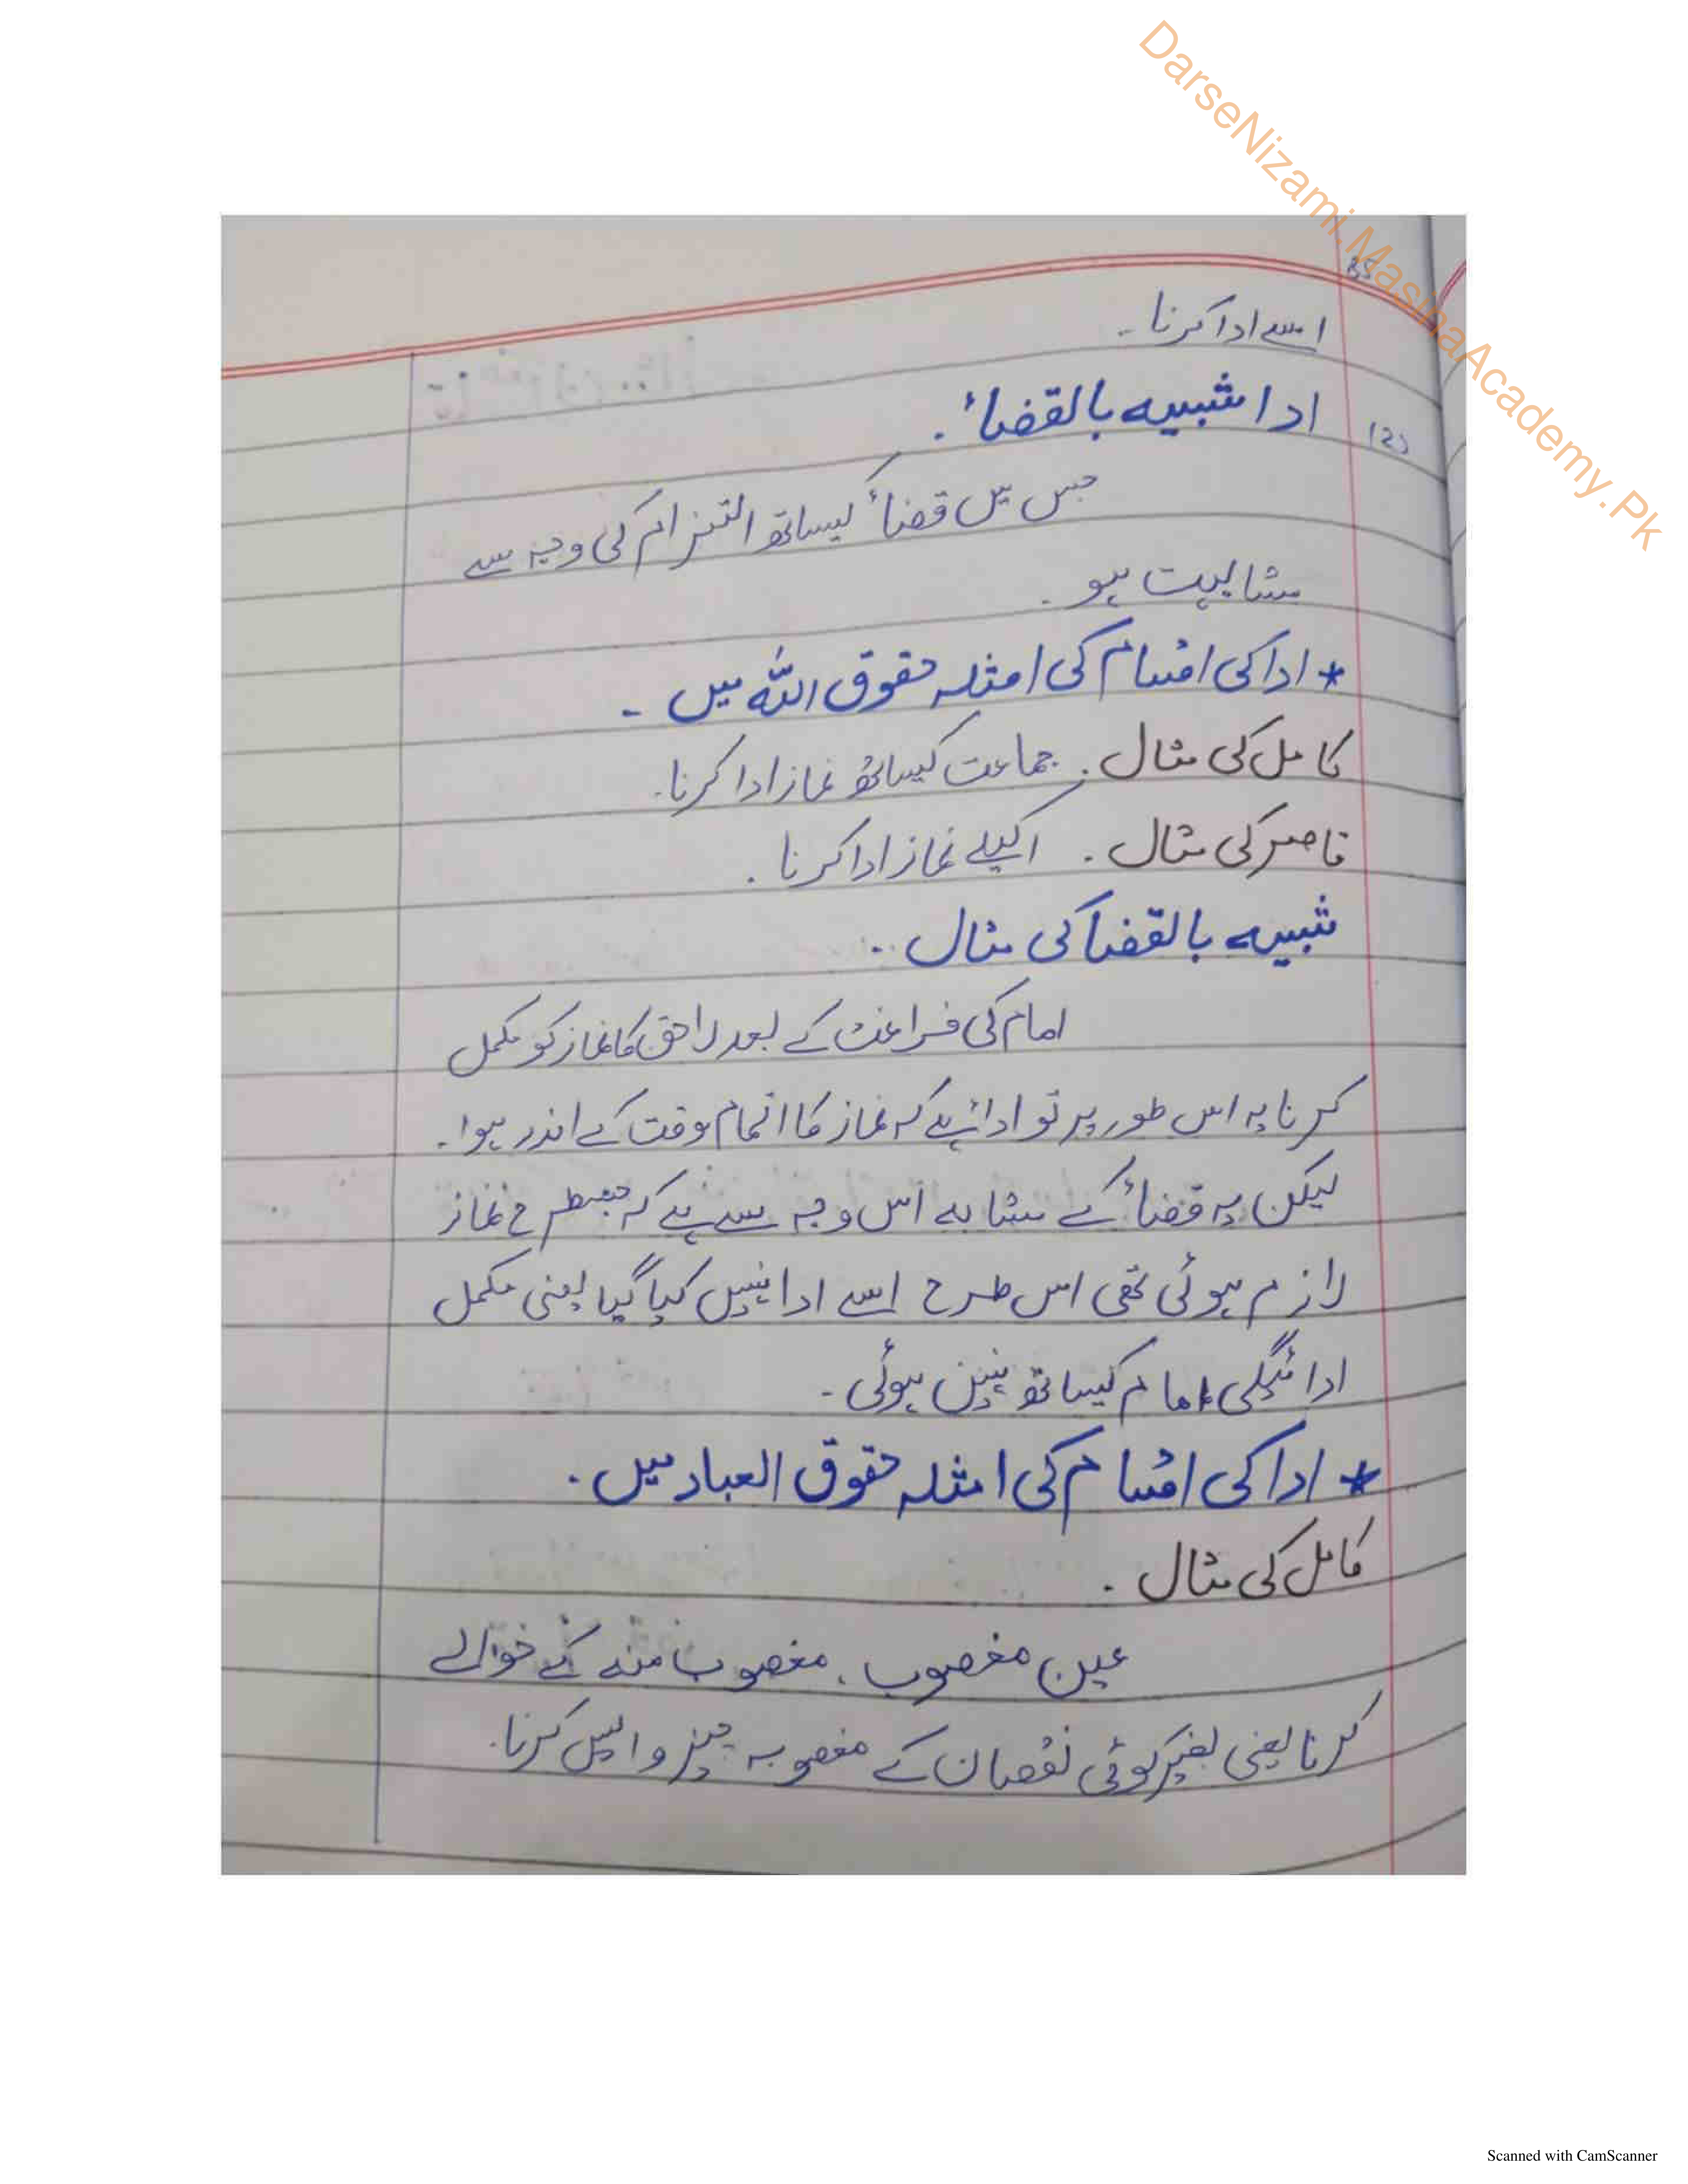 DarseNizami.MashaAcademy.Pk
35
اسے ادا کرنا۔
(2) ادا شبیہ بالقضاء۔
جس میں قضاء کیساتھ التزام کی وجہ سے
مشابہت ہو۔
* ادا کی اقسام کی امثلہ حقوق اللہ میں۔
کامل کی مثال۔ جماعت کیساتھ نماز ادا کرنا۔
قاصر کی مثال۔ اکیلے نماز ادا کرنا۔
شبیہ بالقضا کی مثال۔
امام کی فراغت کے بعد لاحق کا نماز کو مکمل
کرنا یہ اس طور پر تو اداء ہے کہ نماز کا اتمام وقت کے اندر ہوا۔
لیکن یہ قضاء کے مشابہ اس وجہ سے ہے کہ جسطرح نماز
لازم ہوئی تھی اس طرح اسے ادا نہیں کیا گیا یعنی مکمل
ادائیگی امام کیساتھ نہیں ہوئی۔
* ادا کی اقسام کی امثلہ حقوق العباد میں۔
کامل کی مثال۔
عین مغصوب، مغصوب منہ کے حوالے
کرنا یعنی بغیر کوئی نقصان کے مغصوبہ چیز واپس کرنا۔
Scanned with CamScanner